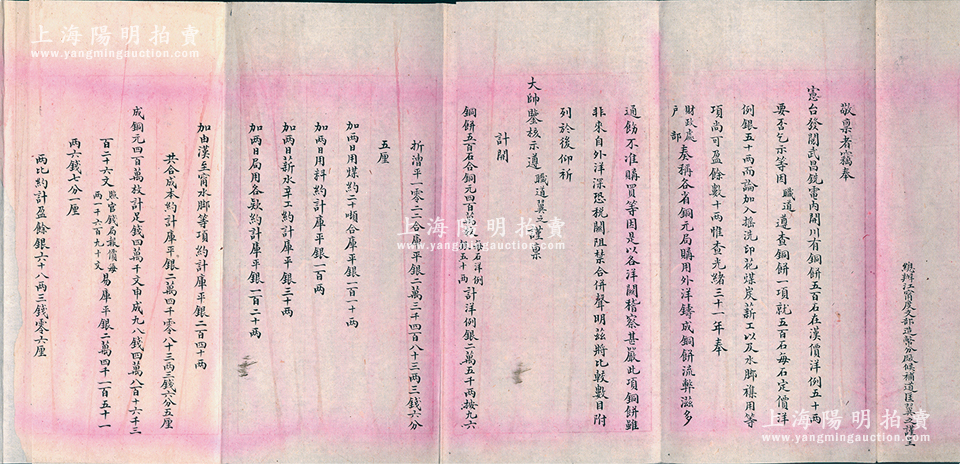 總辦江甯度支部造幣分廠候補道匡翼之謹呈
敬稟者竊奉
憲台發閣武昌銑電內開川有銅餅五百石在漢價洋例五十兩
要否乞示等因職道遵查銅餅一項就五百石每石定價洋
例銀五十兩而論加入搖洗印花煤炭薪工以及水脚襍用等
項尚可盈餘數十兩惟查光緒三十一年奉
財政處
戶部
奏稱各省銅元局購用外洋鑄成銅餅流弊滋多
通飭不准購買等因是以各洋關稽察甚嚴此項銅餅雖
非來自外洋深恐稅關阻禁合併聲明茲將比較數目附
列於後仰祈
大帥鑒核示遵 職道翼之謹稟
計開
銅餅五百石合銅元四百萬枚每石洋例銀五十兩計洋例銀二萬五千兩按九六
折漕平一零二二合庫平銀二萬三千四百八十三兩三錢六分
五厘
加兩日用煤約二十噸合庫平銀一百一十兩
加兩日用料約計庫平銀一百兩
加兩日薪水辛工約計庫平銀三十兩
加兩日局用各款約計庫平銀一百二十兩
加由漢至甯水脚等項約計庫平銀二百四十兩
共合成本約計庫平銀二萬四千零八十三兩三錢六分五厘
成銅元四百萬枚計足錢四萬千文申成九八錢四萬八百十六千三
百二十六文照官錢局報價每兩一千六百九十文易庫平銀二萬四千一百五十一
兩六錢七分一厘
兩比約計盈餘銀六十八兩三錢零六厘
上海陽明拍賣
www.yangmingauction.com
上海陽明拍賣
www.yangmingauction.com
上海陽明拍賣
www.yangmingauction.com